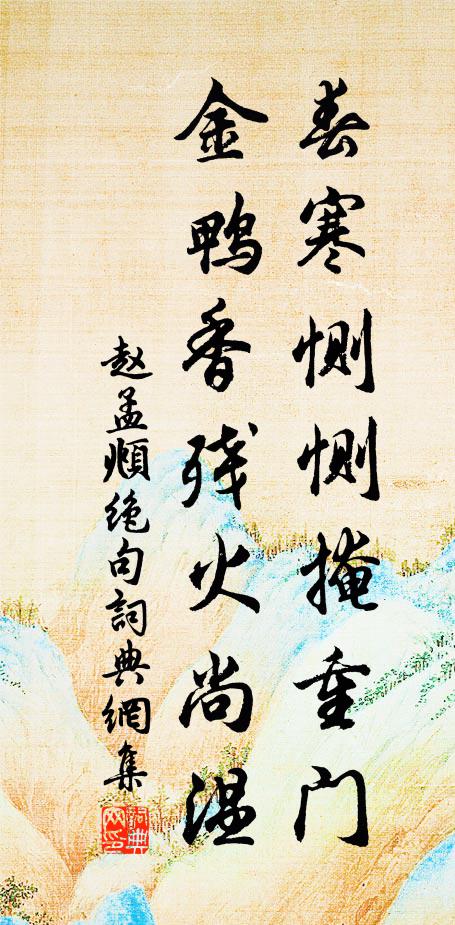 春寒恻恻掩重门
金鸭香残火尚温
赵孟頫绝句詞典網集
詞典网印